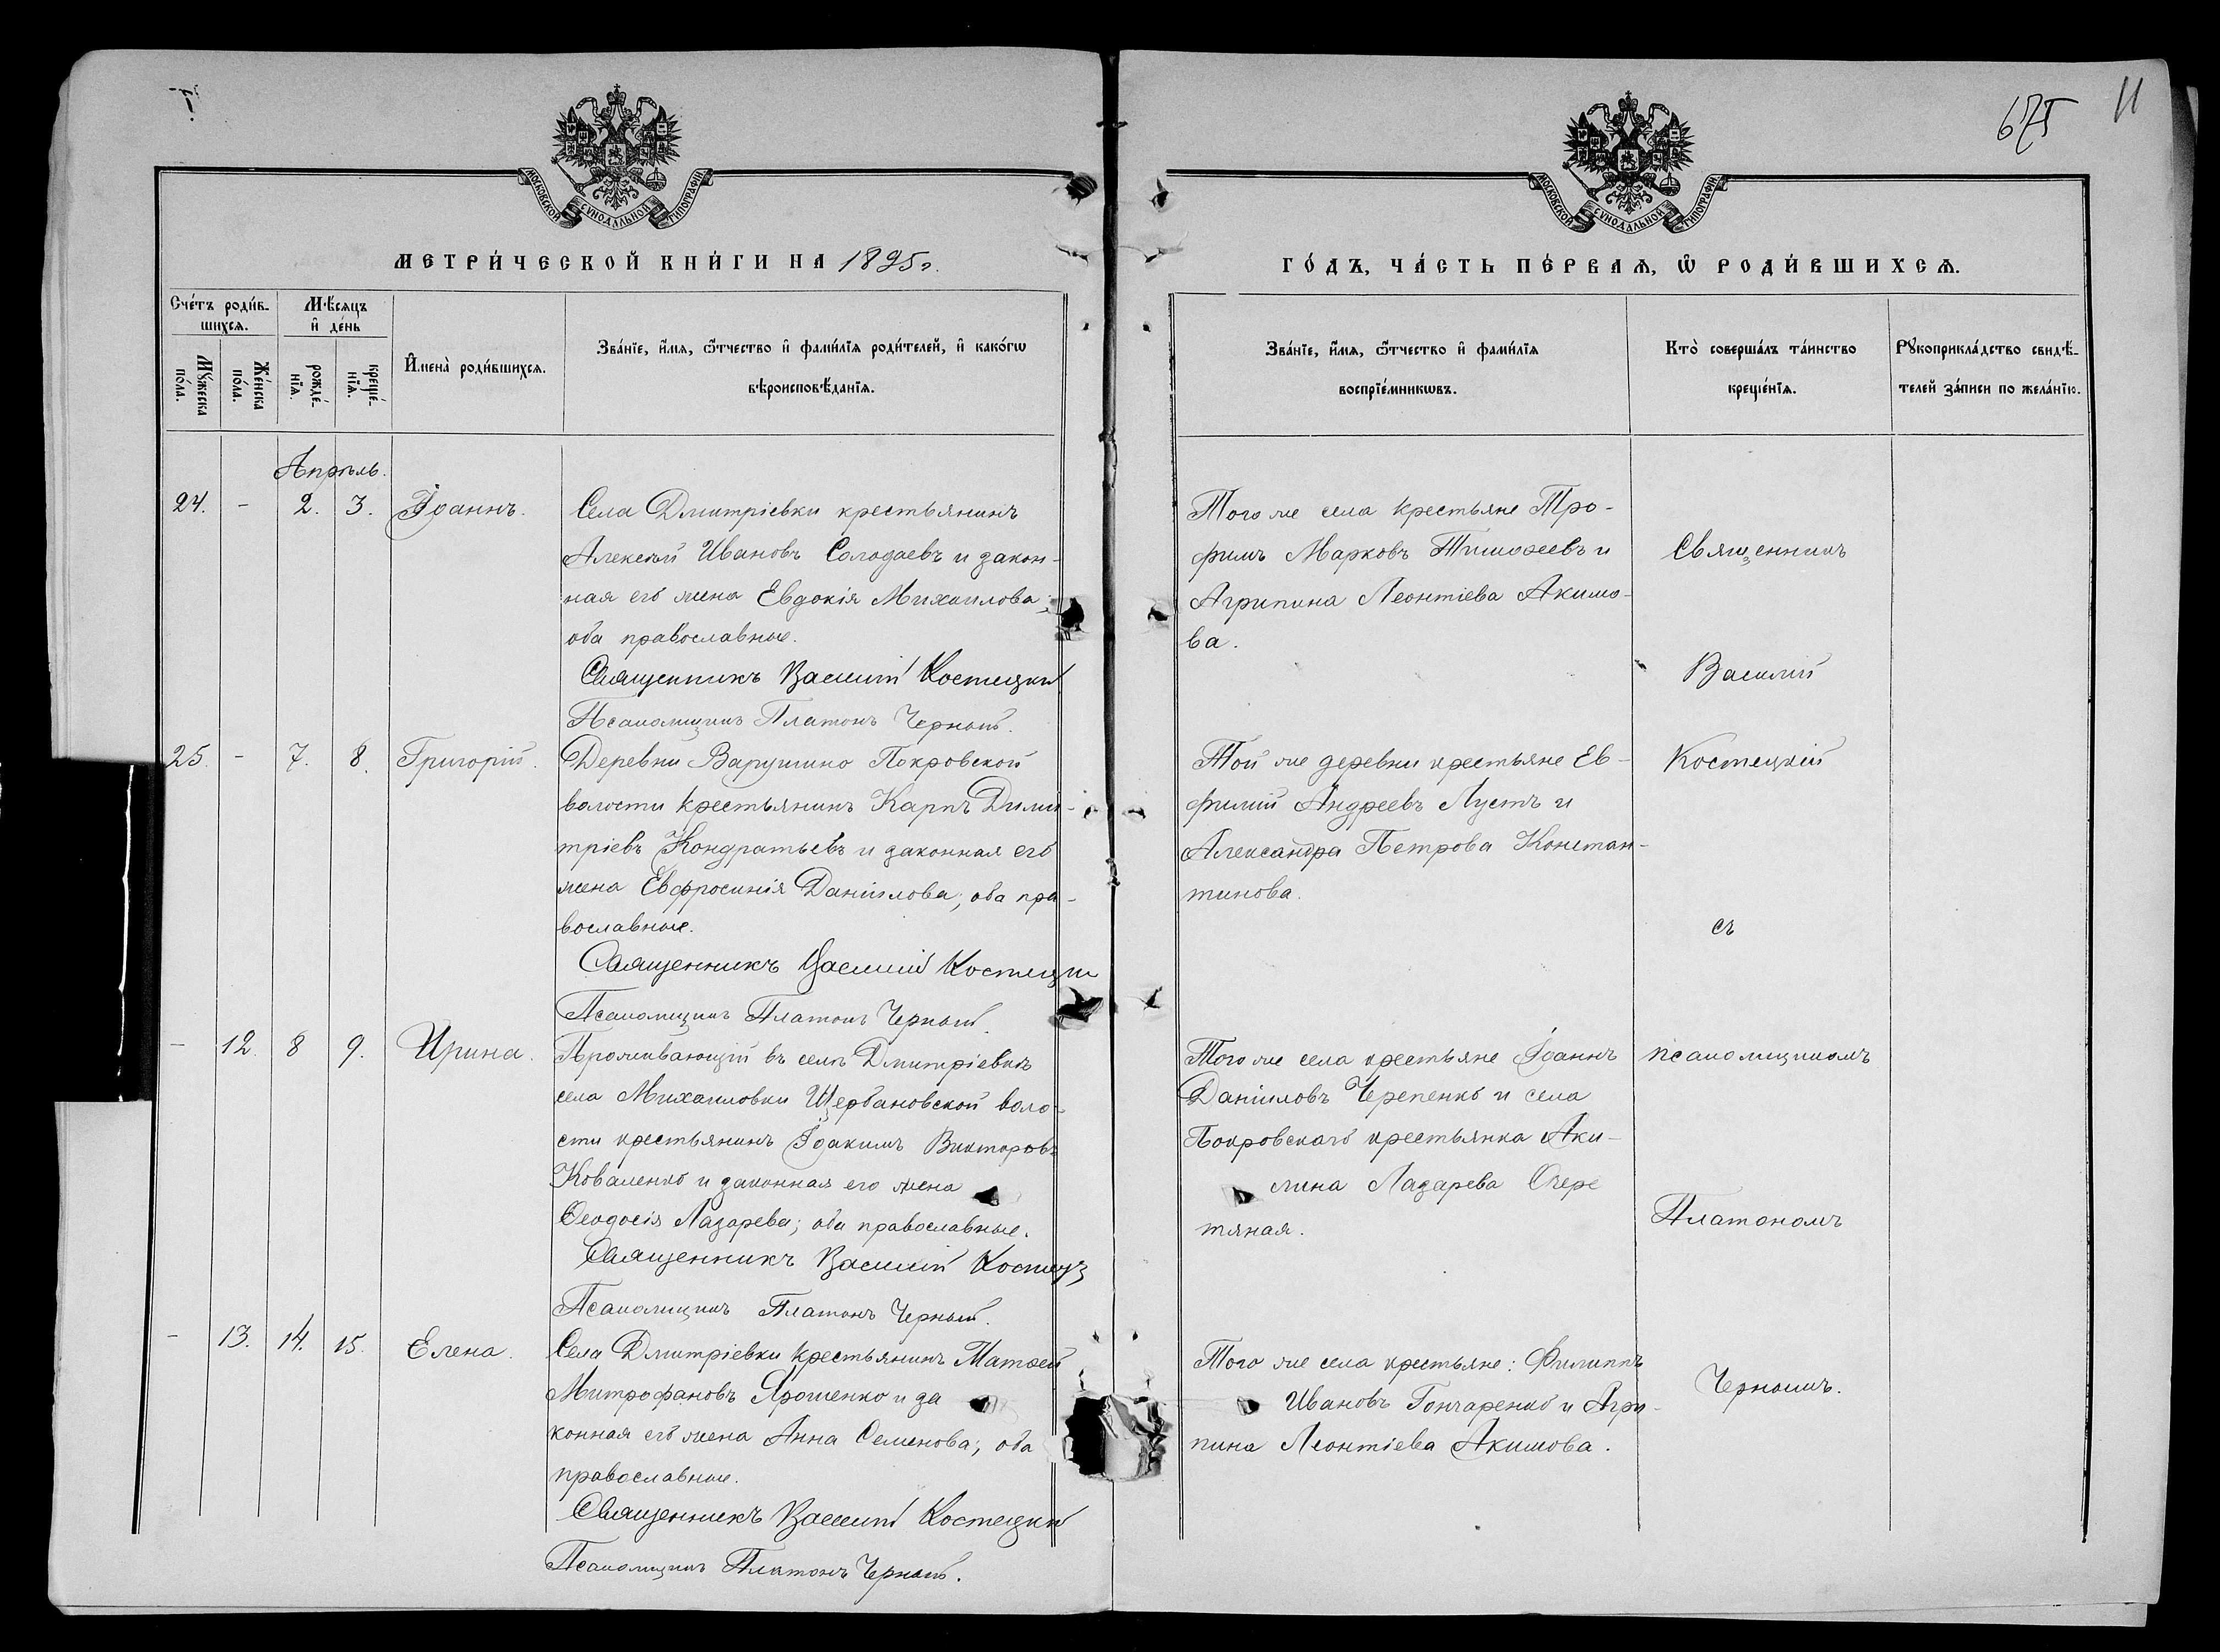 675 11
МОСКОВСКОЙ СѴНОДАЛЬНОЙ ТИПОГРАФІИ
МОСКОВСКОЙ СѴНОДАЛЬНОЙ ТИПОГРАФІИ
МЕТРИ́ЧЕСКОЙ КНИ́ГИ НА 1895 г.
ГО́ДЪ, ЧА́СТЬ ПЕ́РВАѦ, Ѿ РОДИ́ВШИХСѦ.
Сче́тъ роди́в-
шихсѧ.
Мѣ́сѧцъ
и҆ де́нь
Мꙋ́жеска
по́ла.
Же́нска
по́ла.
рожде́-
нїѧ.
креще́-
нїѧ.
И҆мена̀ роди́вшихсѧ.
Зва́нїе, и҆́мѧ, ѻ҆́тчество и҆ фами́лїѧ роди́телей, и҆ како́гѡ
вѣроисповѣ́данїѧ.
Зва́нїе, и҆́мѧ, ѻ҆́тчество и҆ фами́лїѧ
воспрїе́мникѡвъ.
Кто̀ соверша́лъ та́инство
креще́нїѧ.
Рꙋкоприкла́дство свидѣ́-
телей за́писи по жела́нїю.
Апрѣль.
24. - 2. 3. Іоаннъ.
Села Дмитріевки крестьянинъ
Алексѣй Ивановъ Солодаевъ и закон-
ная его жена Евдокія Михаилова;
оба православные.
Священникъ Василій Костецкій
Псаломщикъ Платонъ Черный.
Того же села крестьяне Тро-
фимъ Марковъ Тимоѳеевъ и
Агрипина Леонтіева Акимо-
ва.
Священникъ
Василій
25. - 7. 8. Григорій.
Деревни Варушино Покровской
волости крестьянинъ Карпъ Дими-
тріевъ Кондратьевъ и законная его
жена Евфросинія Даніилова; оба пра-
вославные.
Священникъ Василій Костецкій
Псаломщикъ Платонъ Черный.
Той же деревни крестьяне Ев-
фимій Андреевъ Лустъ и
Александра Петрова Констан-
тинова.
Костецкій
съ
- 12. 8 9. Ирина.
Проживающій въ селѣ Дмитріевкѣ
села Михаиловки Щербановской воло-
сти крестьянинъ Іоакимъ Викторовъ
Коваленко и законная его жена
Ѳеодосія Лазарева; оба православные.
Священникъ Василій Костец
Псаломщикъ Платонъ Черный.
Того же села крестьяне Іоаннъ
Даніиловъ Черепенко и села
Покровскаго крестьянка Аки-
лина Лазарева Очере
тяная.
псаломщикомъ
Платономъ
- 13. 14. 15. Елена.
Села Дмитріевки крестьянинъ Матѳей
Митрофановъ Ярошенко и за
конная его жена Анна Семенова; оба
православные.
Священникъ Василій Костецкій
Псаломщикъ Платонъ Черный.
Того же села крестьяне: Филиппъ
Ивановъ Гончаренко и Агри-
пина Леонтіева Акимова.
Чернымъ.